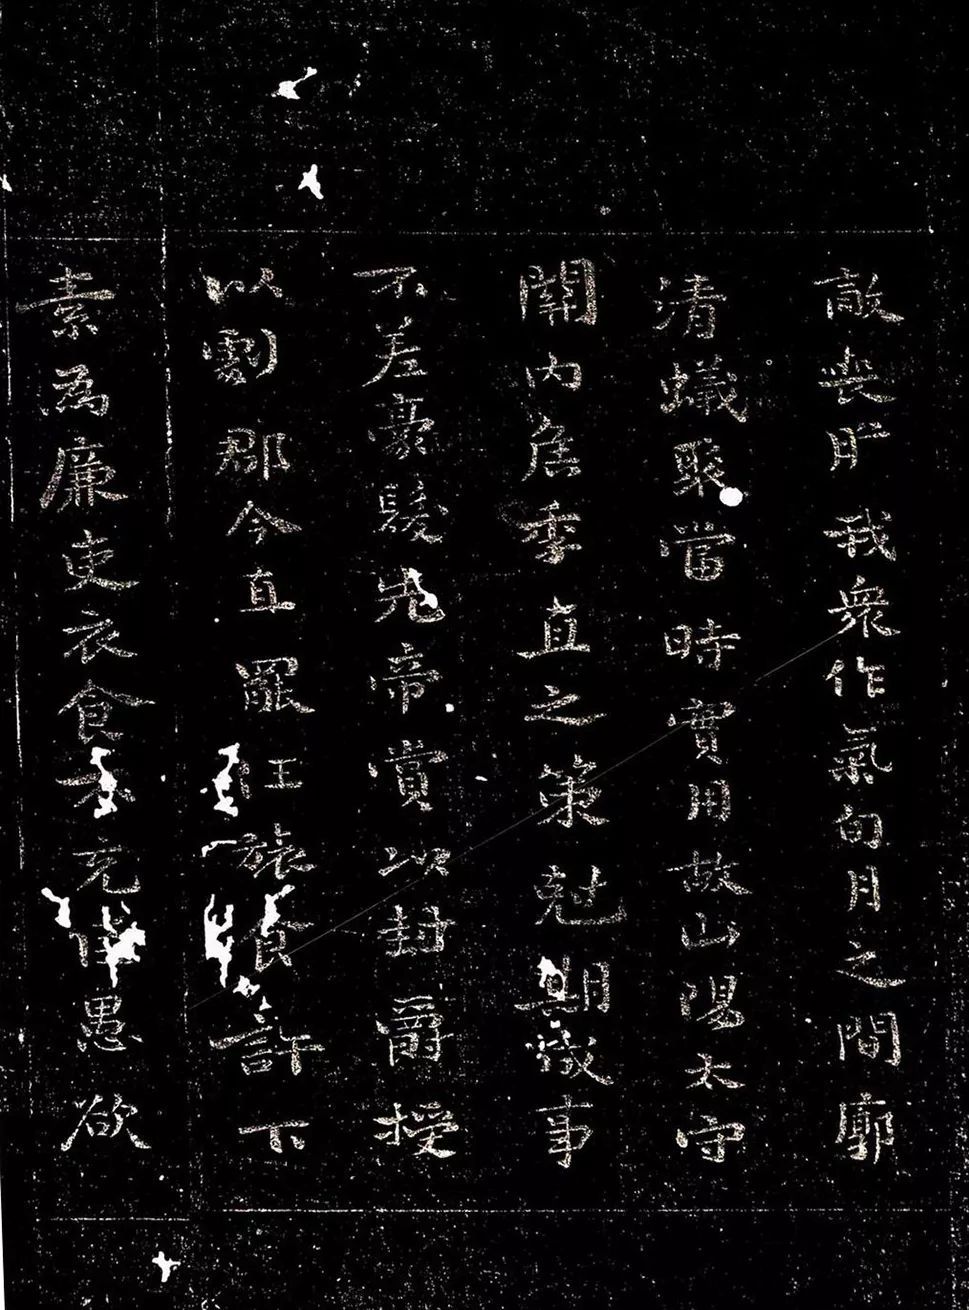 敵喪膽我衆作氣旬月之間廓
清蟻聚當時實用故山陽太守
關内侯季直之策尅期成事
不差豪髮先帝賞以封爵授
以劇郡今直罷任旅食許下
素爲廉吏衣食不充臣愚欲